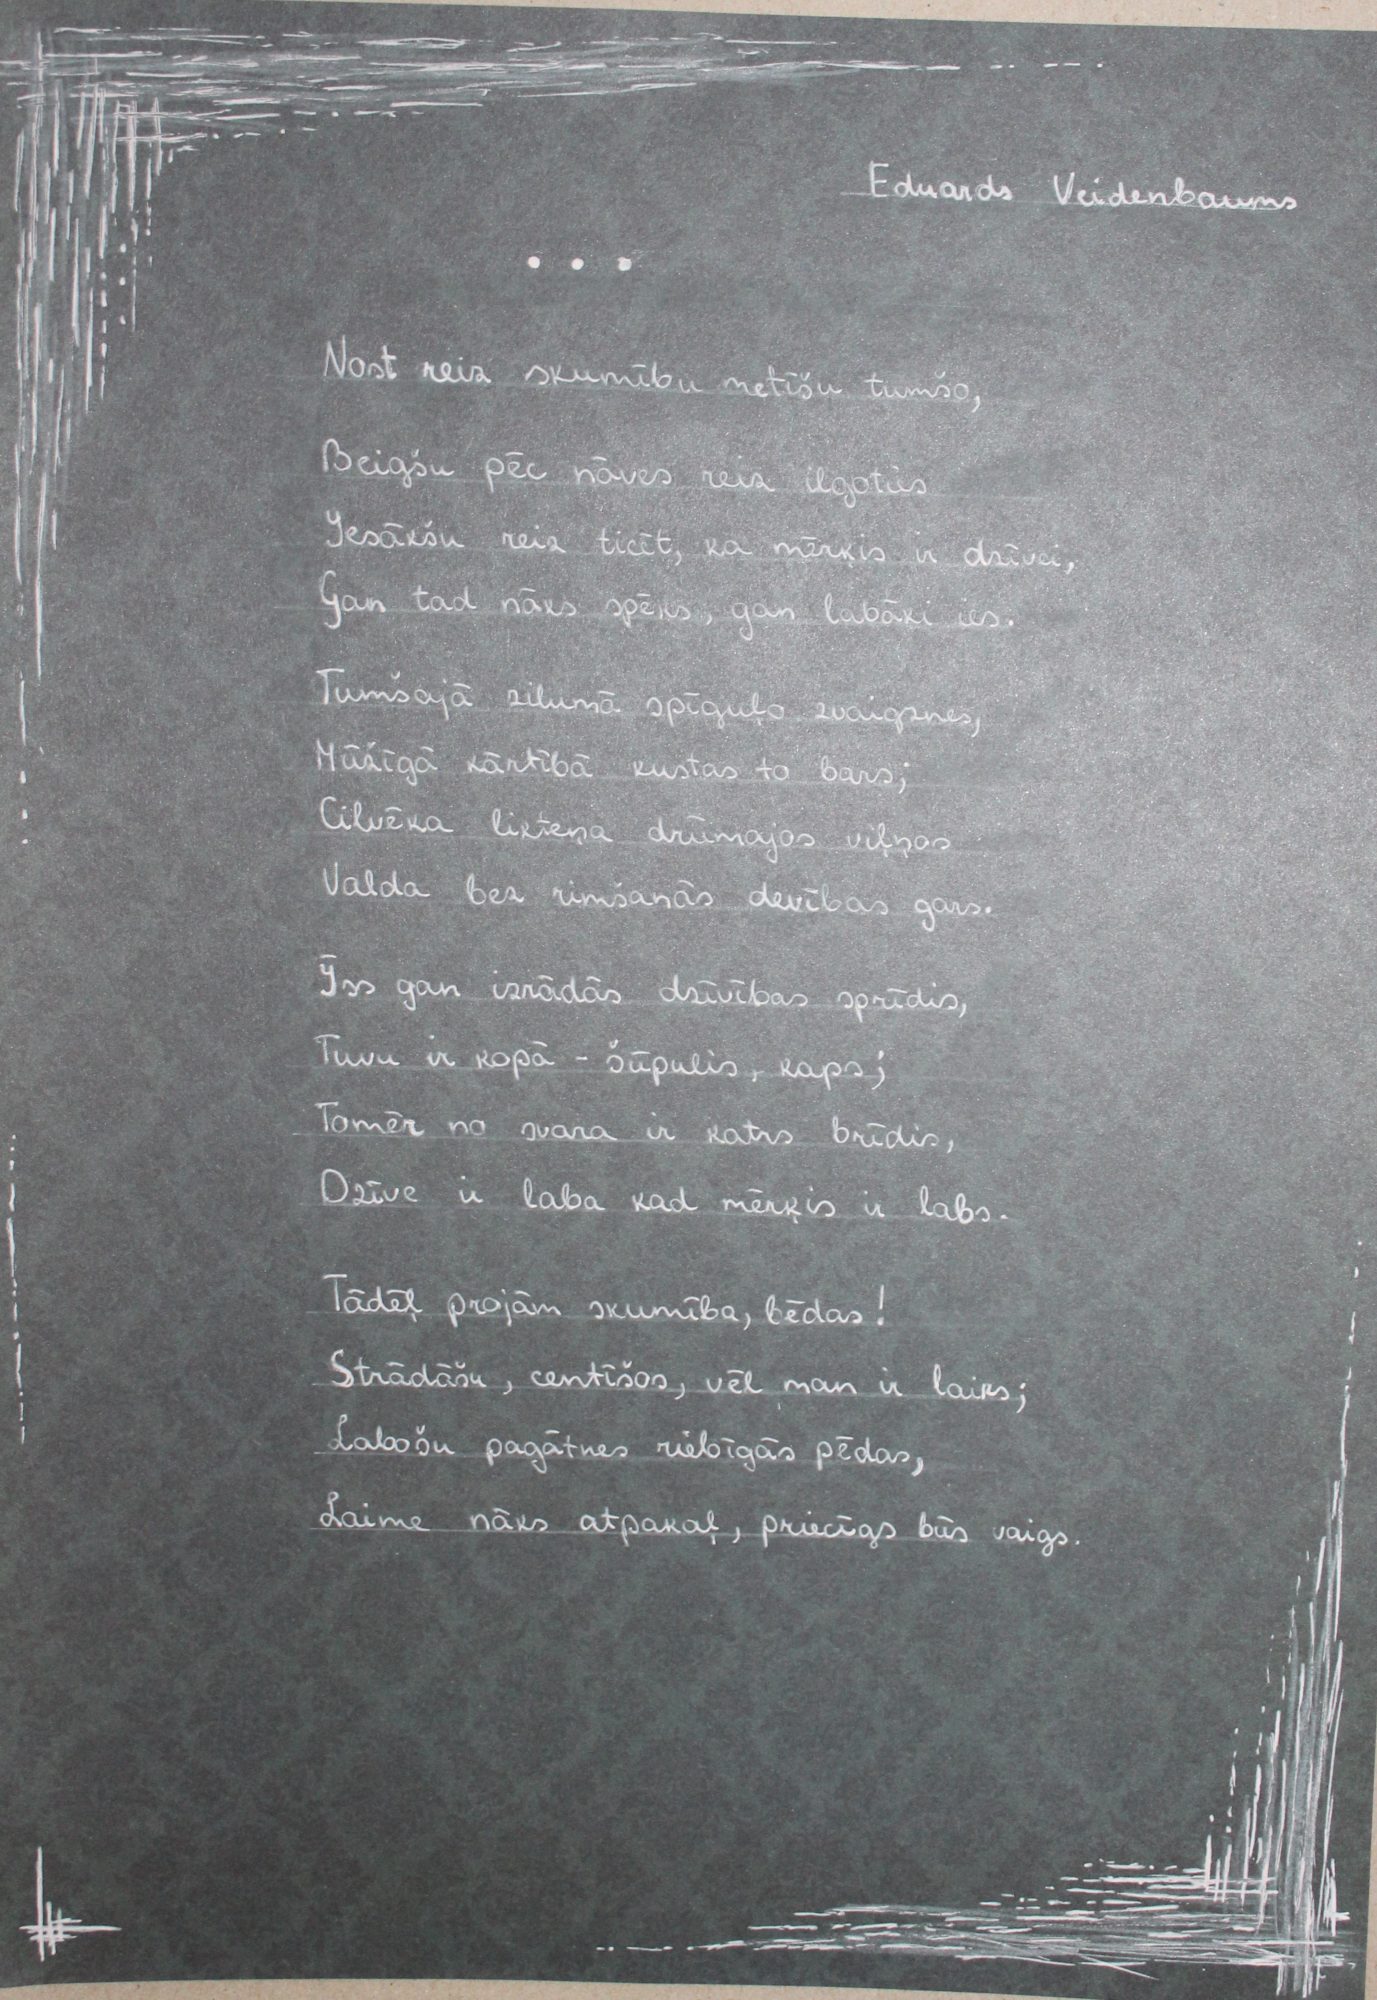 Eduards Veidenbaums
...
Nost reiz skumību metīšu tumšo,
Beigšu pēc nāves reiz ilgoties
Iesākšu reiz ticēt, ka mērķis ir dzīvei,
Gan tad nāks spēks, gan labāki ies.
Tumšajā zilumā spīguļo zvaigznes,
Mūžīgā kārtībā kustas to bars;
Cilvēka likteņa drūmajos viļņos
Valda bez rimšanās devības gars.
Īss gan izrādās dzīvības sprīdis,
Tuvu ir kopā - šūpulis, kaps;
Tomēr no svara ir katrs brīdis,
Dzīve ir laba kad mērķis ir labs.
Tādēļ projām skumība, bēdas!
Strādāšu, centīšos, vēl man ir laiks;
Labošu pagātnes riebīgās pēdas,
Laime nāks atpakaļ, priecīgs būs vaigs.